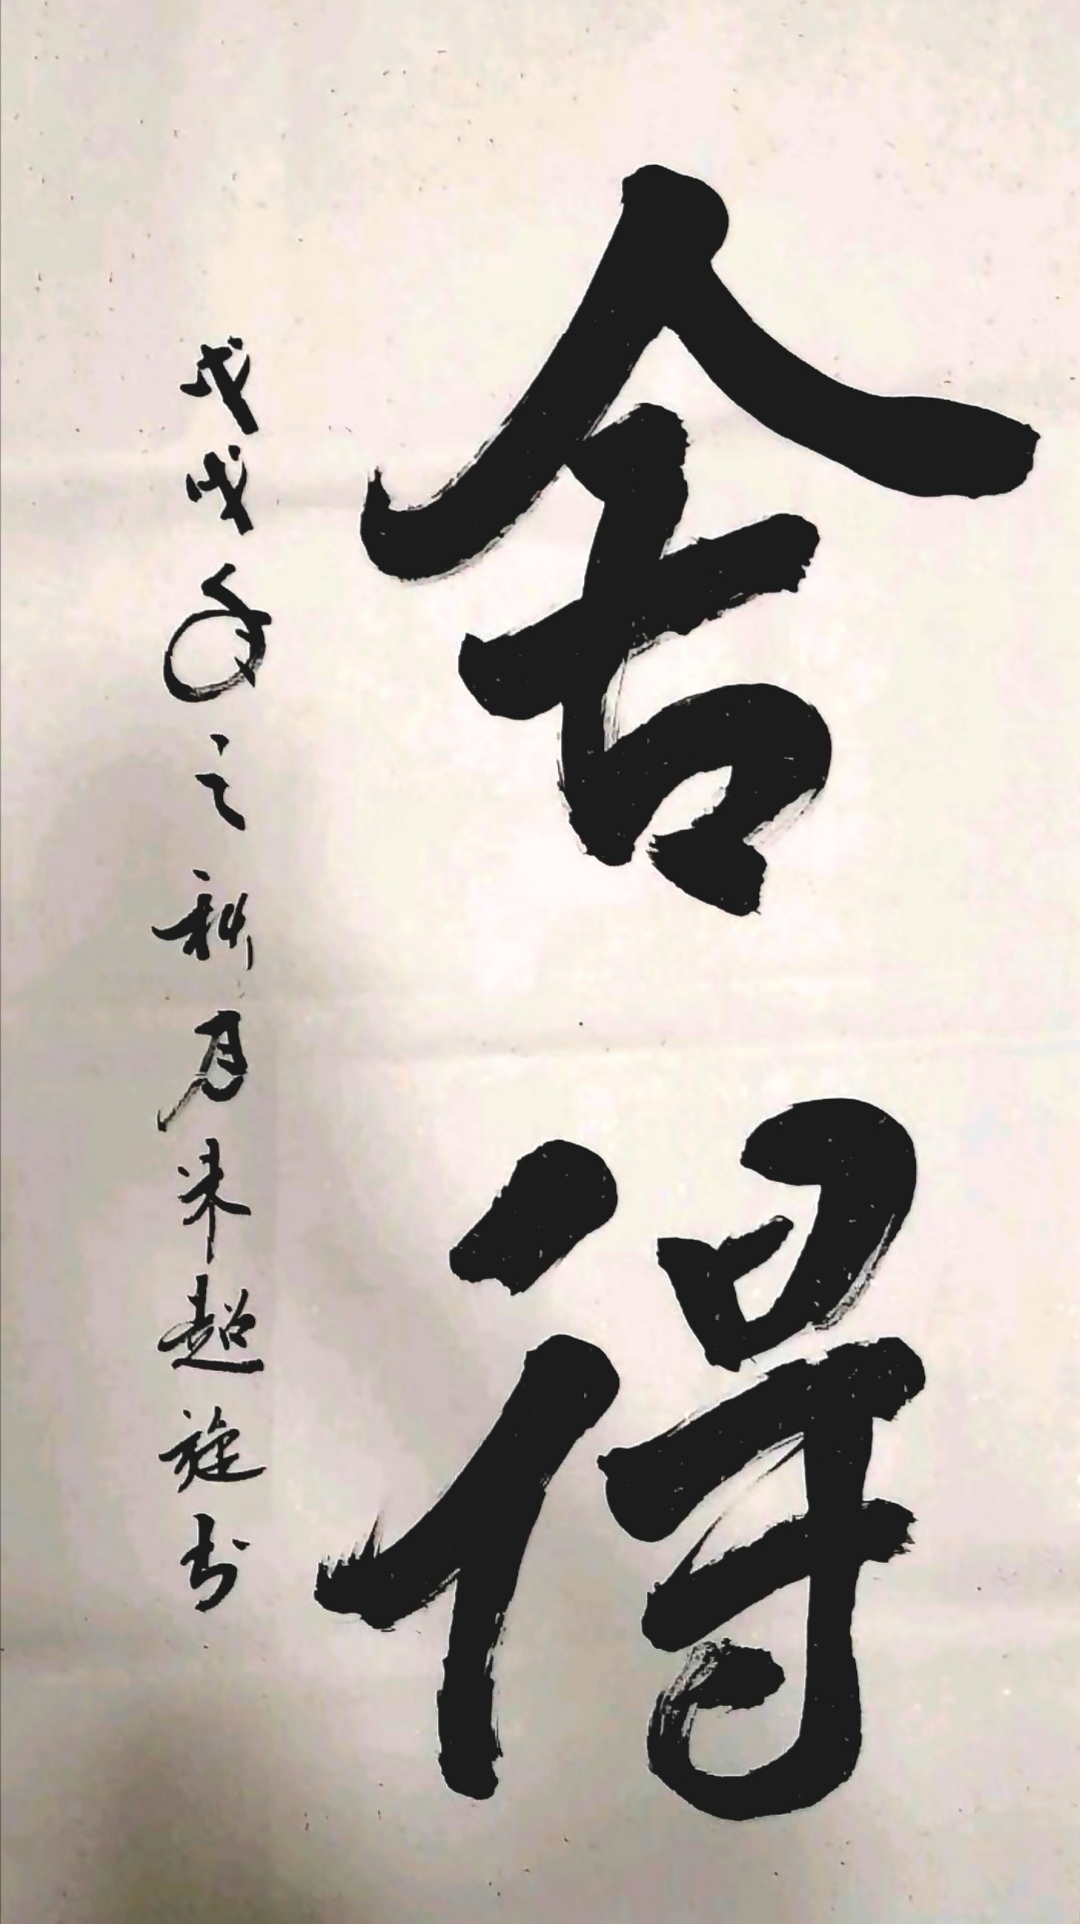 舍得
戊戌年之秋月朱超旋书